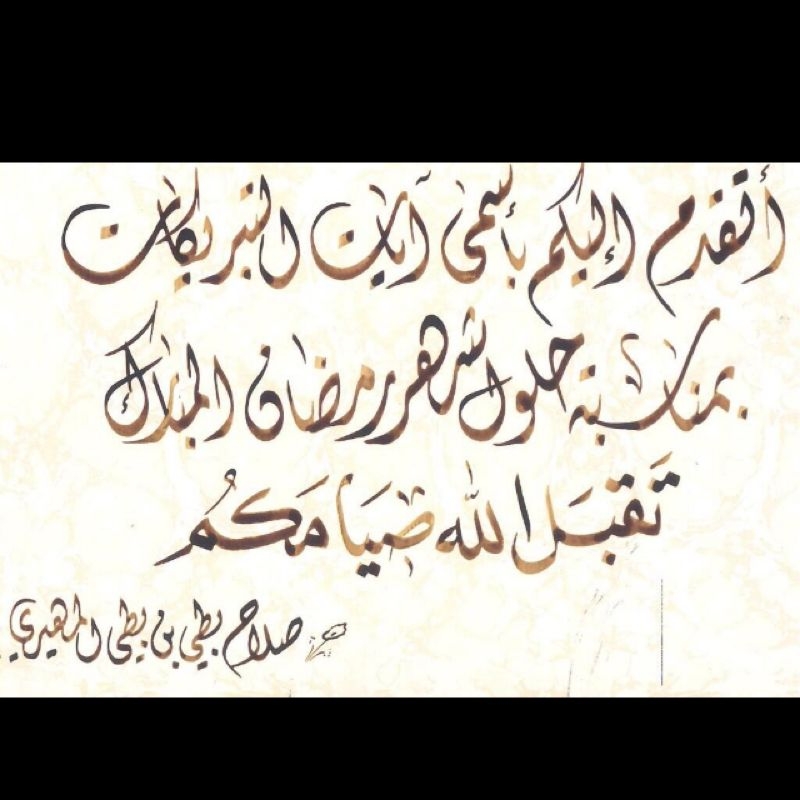 أتقدم إليكم بأسمى آيات التبريكات
بمناسبة حلول شهر رمضان المبارك
تَقبَل الله صِيَامَكمُ
صلاح بطي بن بطي المهيري